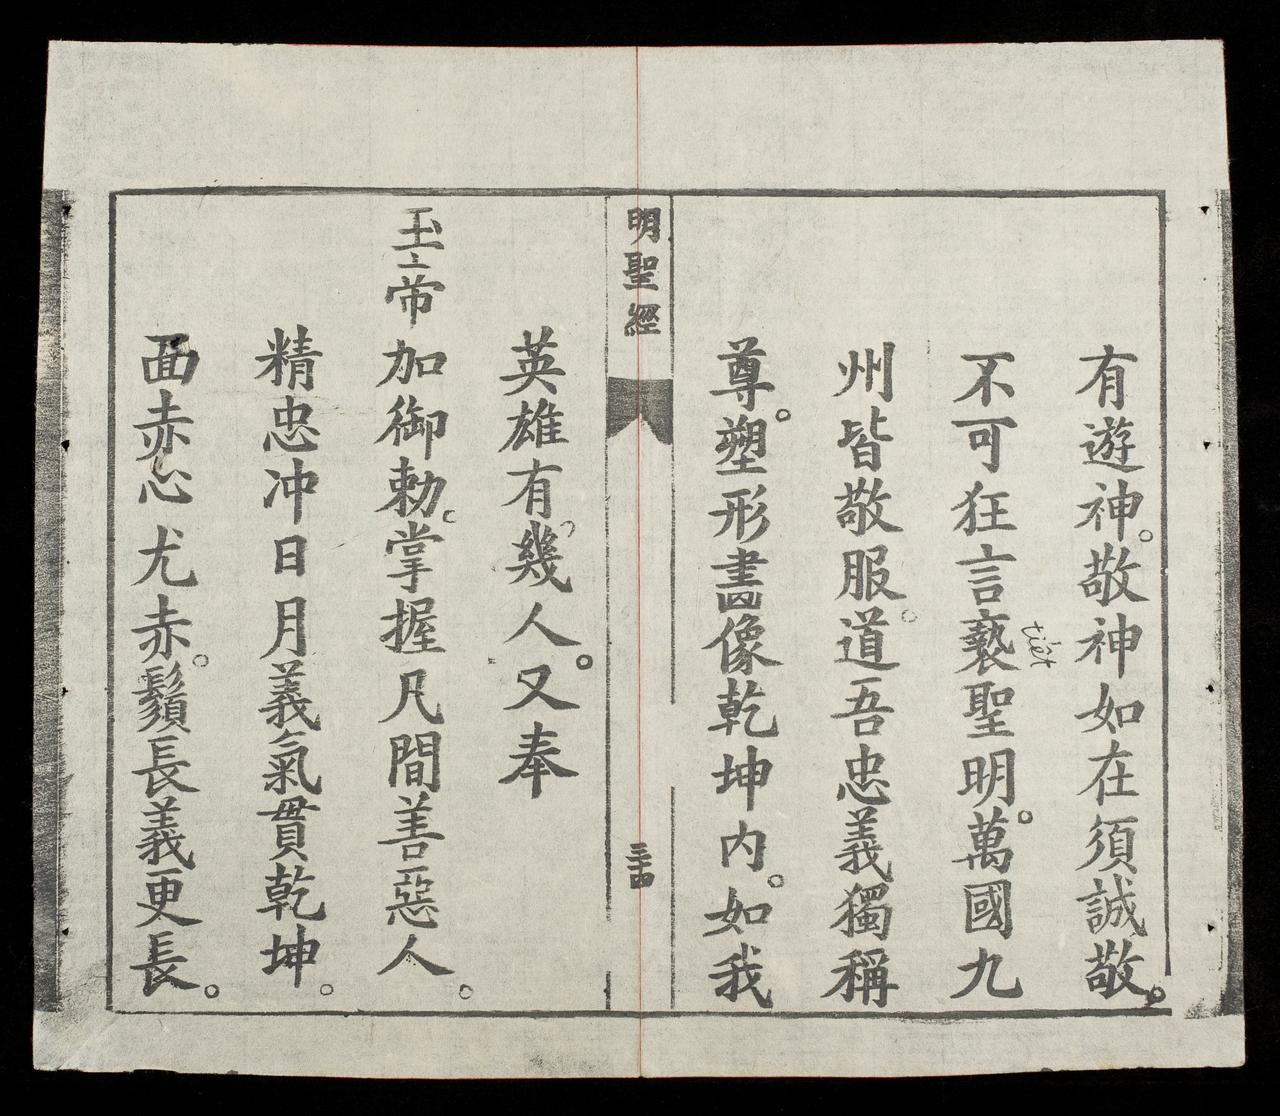 有遊神。敬神如在須誠敬。
不可狂言褻聖明。萬國九
tiết
州皆敬服。道吾忠義獨稱
尊。塑形畵像乾坤内。如我
明聖經
三十四
英雄有幾人。又奉
玉帝加御勅。掌握凡間善惡人。
精忠冲日月義氣貫乾坤。
面赤心尤赤。鬚長義更長。